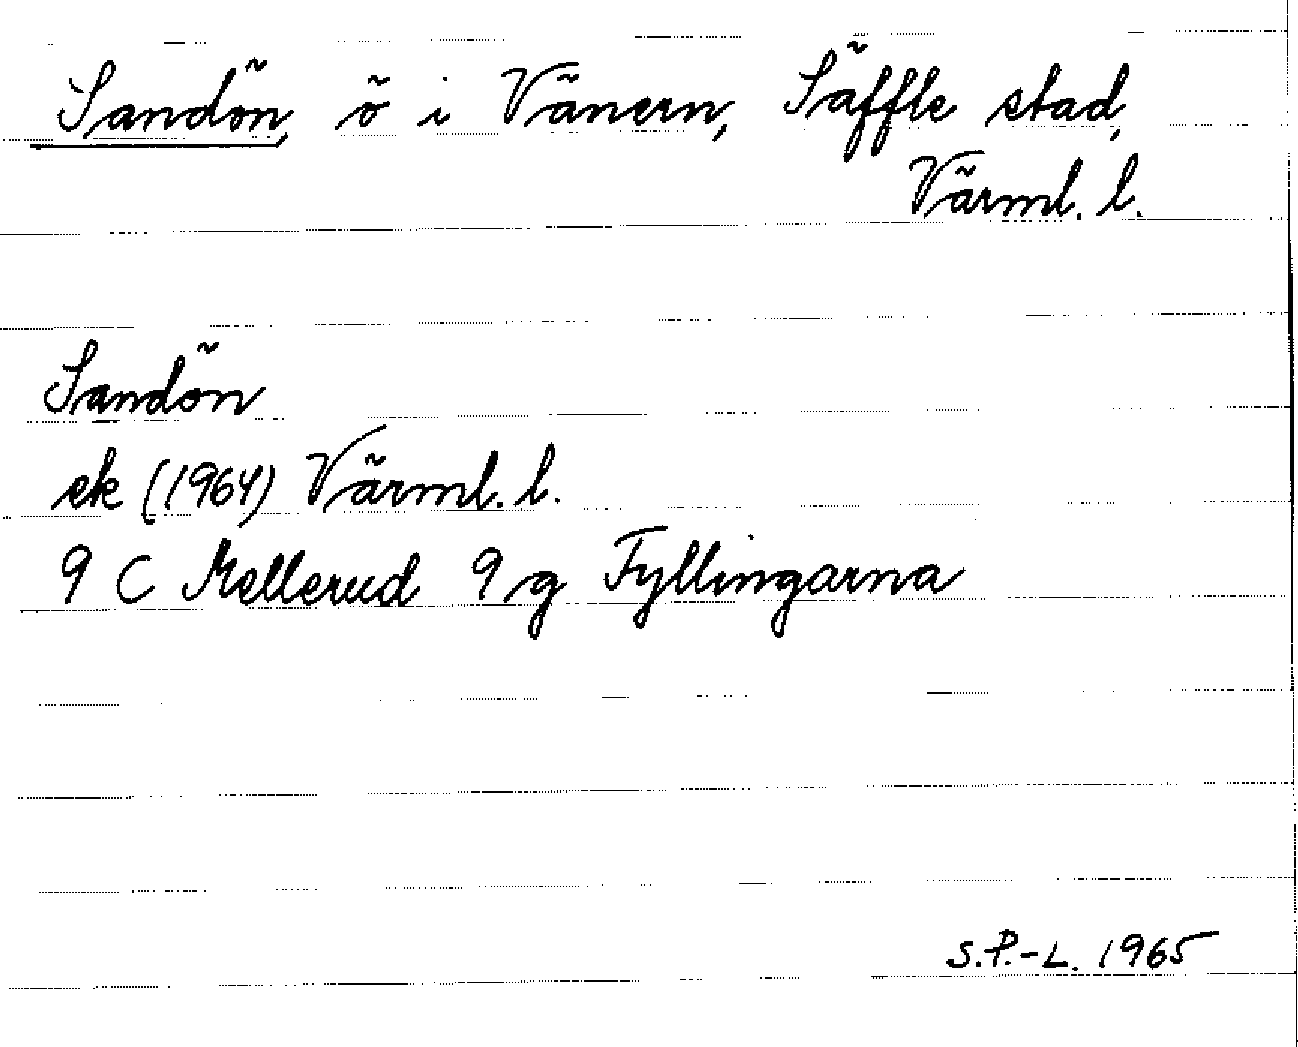 Sandön, ö i Vänern, Säffle stad,
Värml. l.
Sandön
ek (1964) Värml. l.
9 C Mellerud 9 g Fyllingarna
S.P.-L. 1965